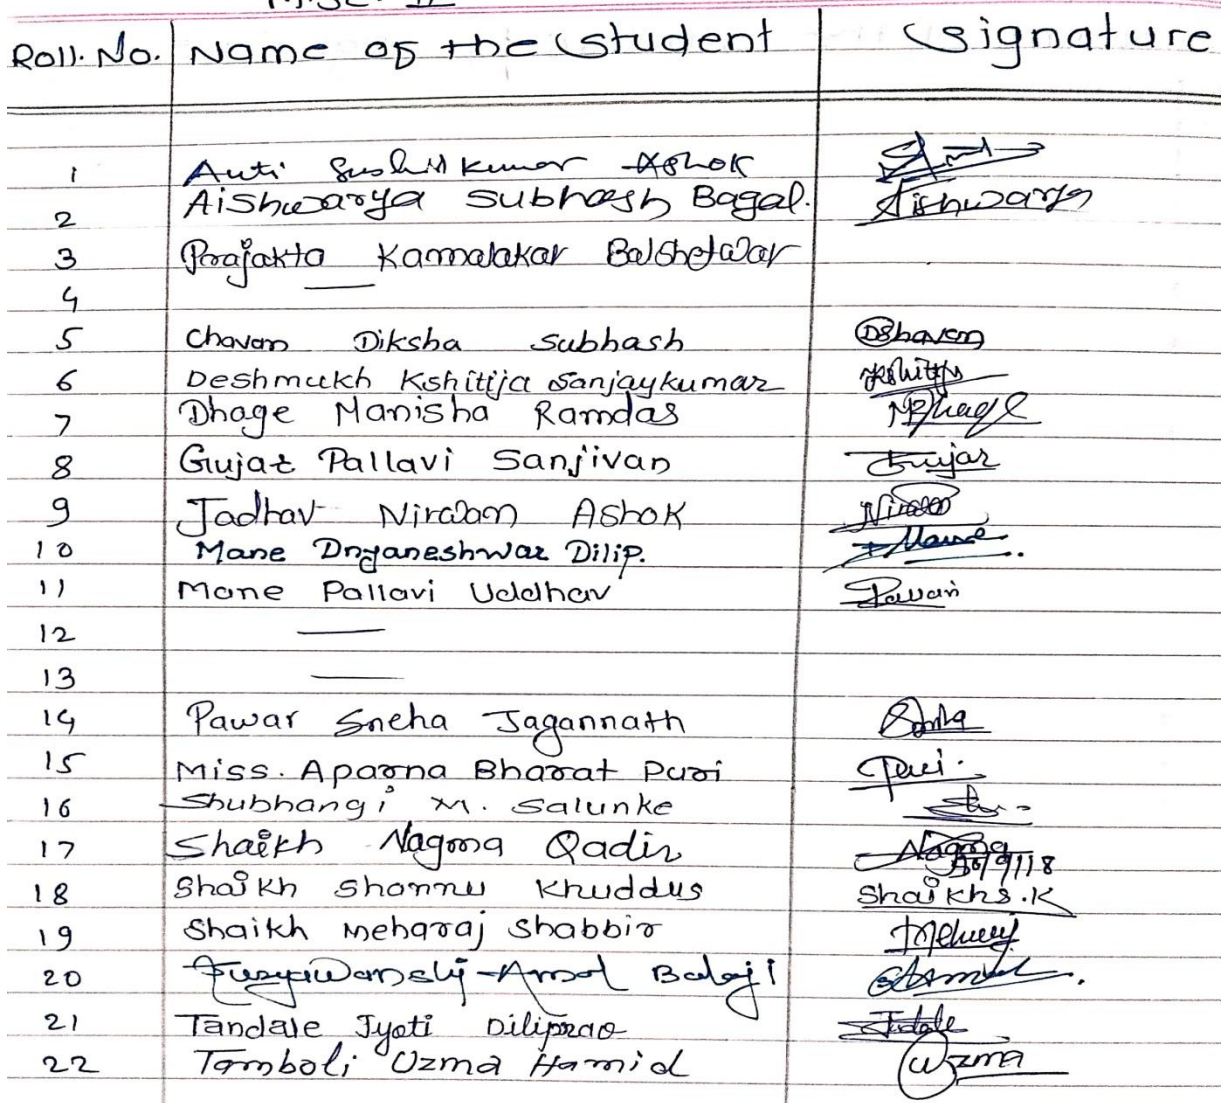 Roll. No. Name of the Student Signature
1 Auti Sushil Kumar Ashok
2 Aishwarya Subhash Bagal. Aishwarya
3 Prajakta Kamalakar Balshetwar
4 —
5 Chavan Diksha Subhash DShavan
6 Deshmukh Kshitija Sanjaykumar Kshitija
7 Dhage Manisha Ramdas MRDhage
8 Gujar Pallavi Sanjivan Gujar
9 Jadhav Niranjan Ashok
10 Mane Dnyaneshwar Dilip. Mane
11 Mane Pallavi Uddhav
12 —
13 —
14 Pawar Sneha Jagannath
15 Miss. Aparna Bharat Puri Puri.
16 Shubhangi M. Salunke
17 Shaikh Nagma Qadir Nagma
18 Shaikh Shannu Khuddus Shaikh S.K
19 Shaikh Meharaj Shabbir
20 Suryawanshi Amol Balaji
21 Tandale Jyoti Diliprao
22 Tamboli Uzma Hamid Uzma